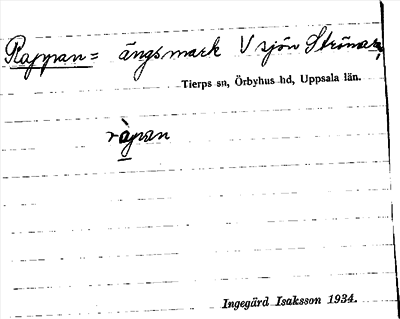 Rappan = ängsmark V sjön Strömaren,
Tierps sn, Örbyhus hd, Uppsala län.
ràpan
Ingegärd Isaksson 1934.